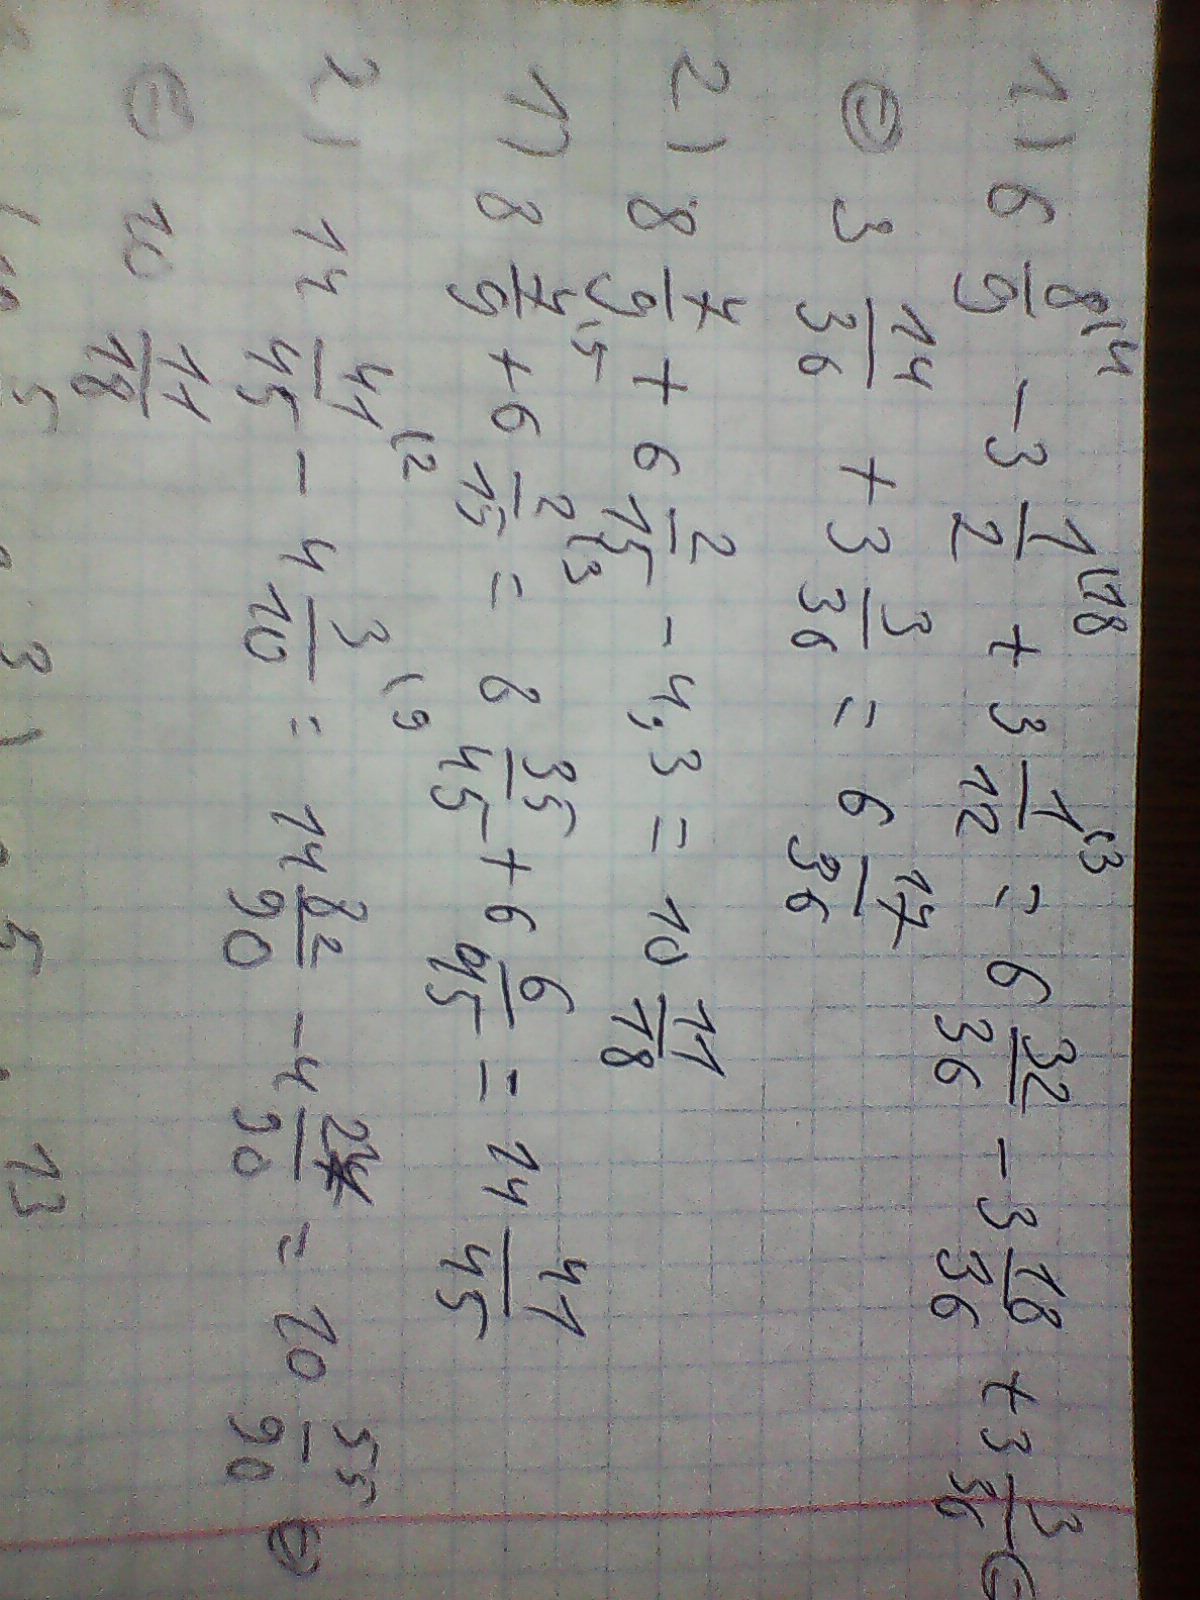 1) 6 8/9 (4 - 3 1/2 (18 + 3 1/12 (3 = 6 32/36 - 3 18/36 + 3 3/36 (=)
(=) 3 14/36 + 3 3/36 = 6 17/36
2) 8 7/9 + 6 2/15 - 4,3 = 10 11/18
1) 8 7/9 (5 + 6 2/15 (3 = 8 35/45 + 6 6/45 = 14 41/45
2) 14 41/45 (2 - 4 3/10 (9 = 14 82/90 - 4 27/90 = 10 55/90 (=)
(=) 10 11/18